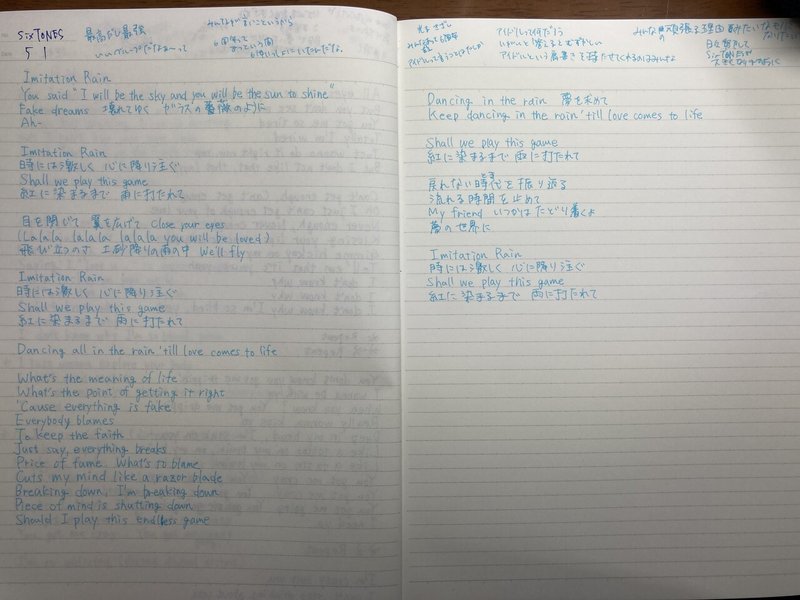 SixTONES
51
最高だし最強
いいグループだなぁ〜って
みんなが言いたいこというから
Imitation Rain
You said "I will be the sky and you will be the sun to shine"
Fake dreams 壊れてゆく ガラスの薔薇のように
Ah-
Imitation Rain
時には激しく 心に降り注ぐ
Shall we play this game
紅に染まるまで 雨に打たれて
目を閉じて 翼を広げて Close your eyes
(Lalala lalala lalala you will be loved)
飛び立つのさ 土砂降りの雨の中 We'll fly
Imitation Rain
時には激しく 心に降り注ぐ
Shall we play this game
紅に染まるまで 雨に打たれて
Dancing all in the rain 'till love comes to life
What's the meaning of life
What's the point of getting it right
'Cause everything is fake
Everybody blames
To keep the faith
Just say, everything breaks
Price of fame What's to blame
Cuts my mind like a razor blade
Breaking down, I'm breaking down
Piece of mind is shutting down
Should I play this endless game
アイドルって何だろう
いざいざ答えるとむずかしい
アイドルという肩書きを
みんなの頑張る理由
SixTONESが
Dancing in the rain 夢を求めて
Keep dancing in the rain 'till love comes to life
Shall we play this game
紅に染まるまで 雨に打たれて
戻れない時代を振り返る
とき
流れる時間を止めて
My friend いつかはたどり着くよ
夢の世界に
Imitation Rain
時には激しく 心に降り注ぐ
Shall we play this game
紅に染まるまで 雨に打たれて